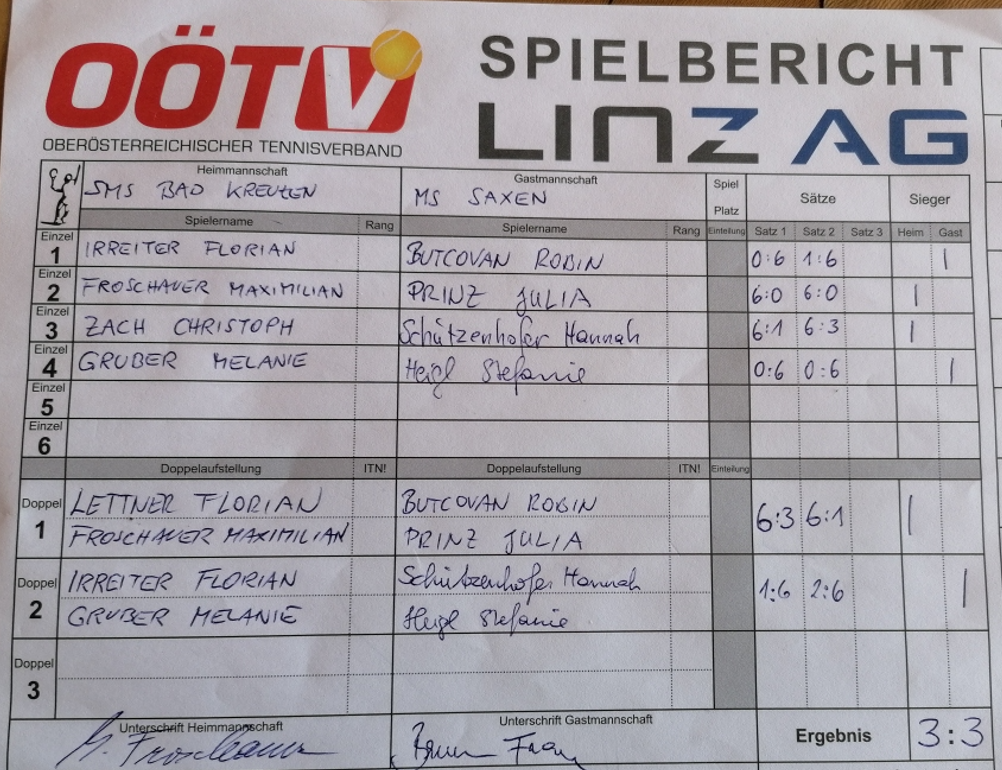 OÖTV
SPIELBERICHT
OBERÖSTERREICHISCHER TENNISVERBAND
LINZ AG
Heimmannschaft Gastmannschaft Spiel Platz Sätze Sieger
SMS BAD KREUZEN MS SAXEN
Spielername Rang Spielername Rang Einteilung Satz 1 Satz 2 Satz 3 Heim Gast
Einzel 1 IRREITER FLORIAN BUTCOVAN ROBIN 0:6 1:6 |
Einzel 2 FROSCHAUER MAXIMILIAN PRINZ JULIA 6:0 6:0 |
Einzel 3 ZACH CHRISTOPH Schützenhofer Hannah 6:1 6:3 |
Einzel 4 GRUBER MELANIE Heigl Stefanie 0:6 0:6 |
Einzel 5
Einzel 6
Doppelaufstellung ITN! Doppelaufstellung ITN! Einteilung
Doppel 1 LETTNER FLORIAN BUTCOVAN ROBIN 6:3 6:1 |
FROSCHAUER MAXIMILIAN PRINZ JULIA
Doppel 2 IRREITER FLORIAN Schützenhofer Hannah 1:6 2:6 |
GRUBER MELANIE Heigl Stefanie
Doppel 3
Unterschrift Heimmannschaft Unterschrift Gastmannschaft Ergebnis 3:3